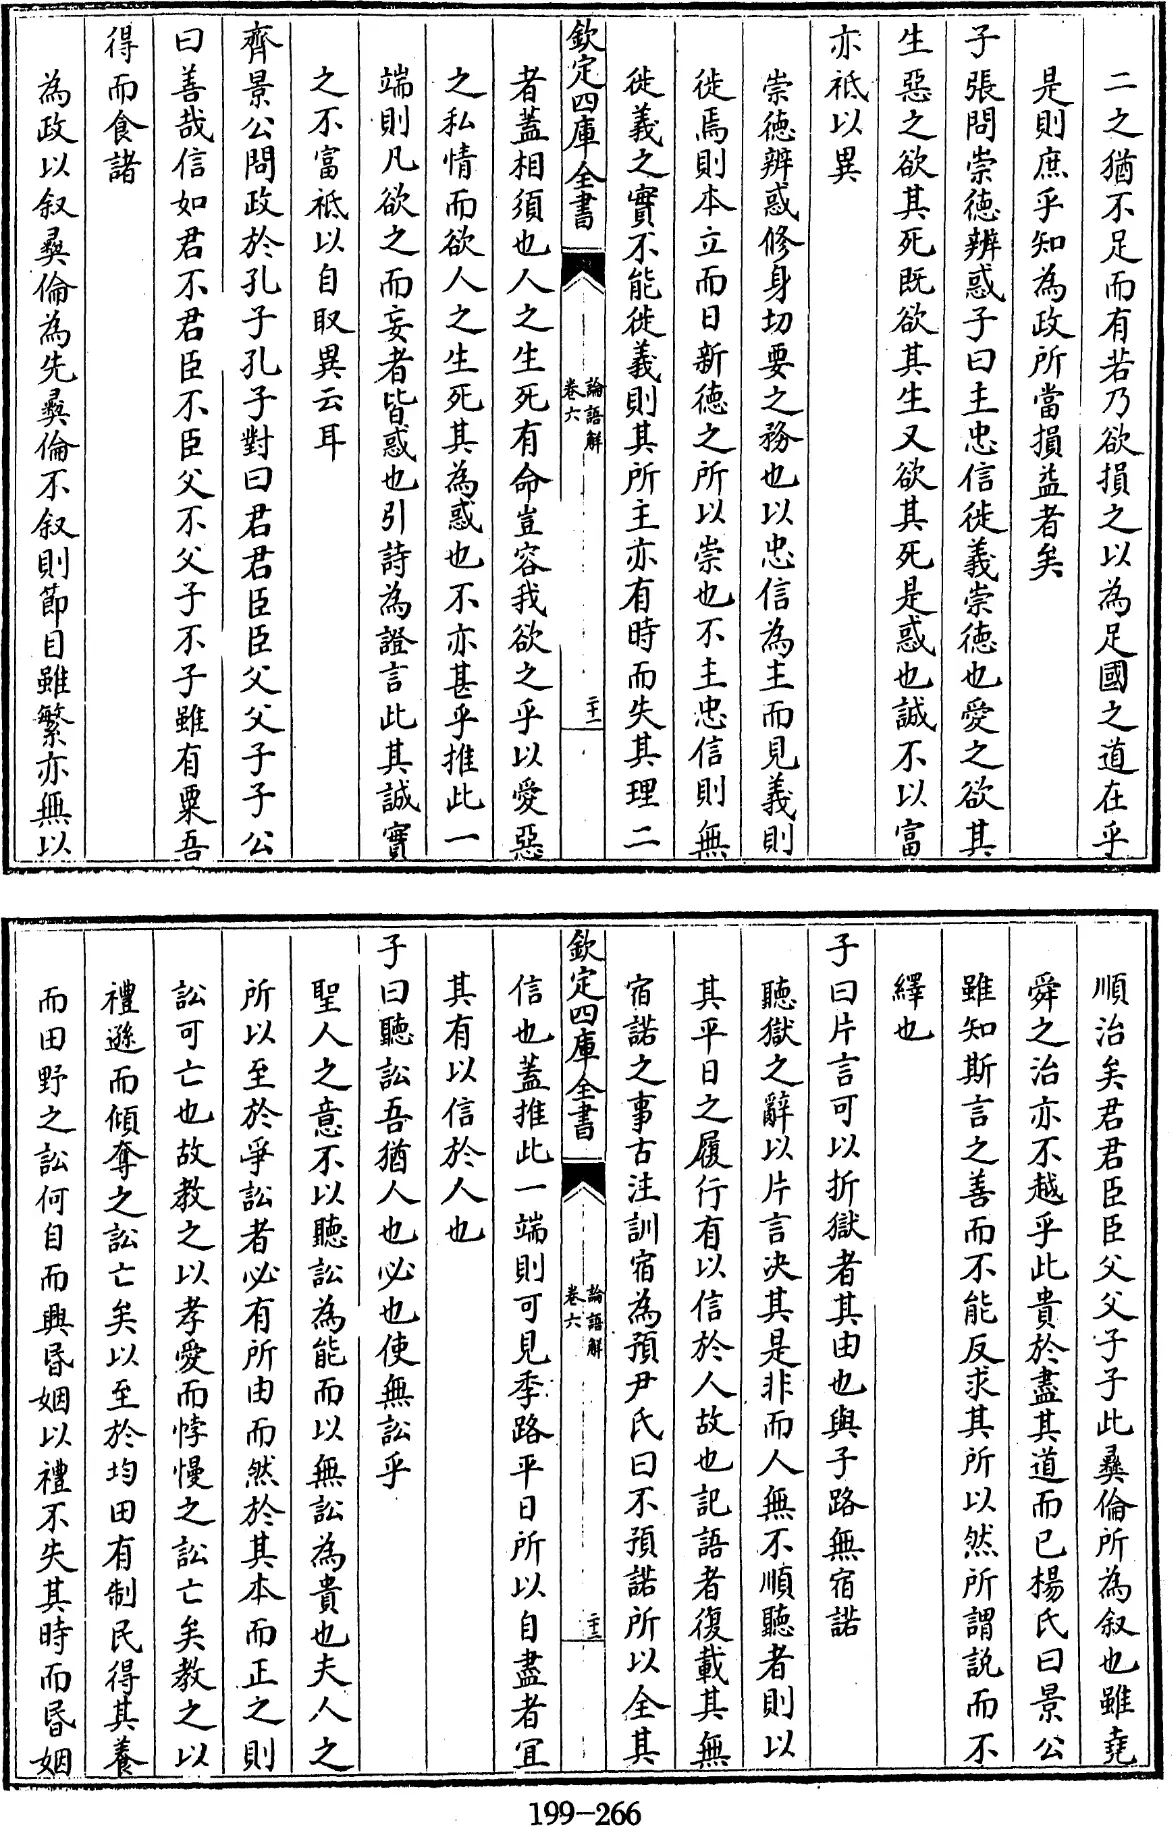 二之猶不足而有若乃欲損之以為足國之道在乎
是則庶乎知為政所當損益者矣
子張問崇徳辨惑子曰主忠信徙義崇徳也愛之欲其
生惡之欲其死既欲其生又欲其死是惑也誠不以富
亦祗以異
崇徳辨惑修身切要之務也以忠信為主而見義則
徙焉則本立而日新徳之所以崇也不主忠信則無
徙義之實不能徙義則其所主亦有時而失其理二
欽定四庫全書
論語解
卷六
二十一
者蓋相須也人之生死有命豈容我欲之乎以愛惡
之私情而欲人之生死其為惑也不亦甚乎推此一
端則凡欲之而妄者皆惑也引詩為證言此其誠實
之不富祗以自取異云耳
齊景公問政於孔子孔子對曰君君臣臣父父子子公
曰善哉信如君不君臣不臣父不父子不子雖有粟吾
得而食諸
為政以叙彛倫為先彛倫不叙則節目雖繁亦無以
順治矣君君臣臣父父子子此彛倫所為叙也雖堯
舜之治亦不越乎此貴於盡其道而已楊氏曰景公
雖知斯言之善而不能反求其所以然所謂説而不
繹也
子曰片言可以折獄者其由也與子路無宿諾
聽獄之辭以片言决其是非而人無不順聽者則以
其平日之履行有以信於人故也記語者復載其無
宿諾之事古注訓宿為預尹氏曰不預諾所以全其
欽定四庫全書
論語解
卷六
二十二
信也蓋推此一端則可見季路平日所以自盡者宜
其有以信於人也
子曰聽訟吾猶人也必也使無訟乎
聖人之意不以聽訟為能而以無訟為貴也夫人之
所以至於爭訟者必有所由而然於其本而正之則
訟可亡也故教之以孝愛而悖慢之訟亡矣教之以
禮遜而傾奪之訟亡矣以至於均田有制民得其養
而田野之訟何自而興昏姻以禮不失其時而昏姻
199-266